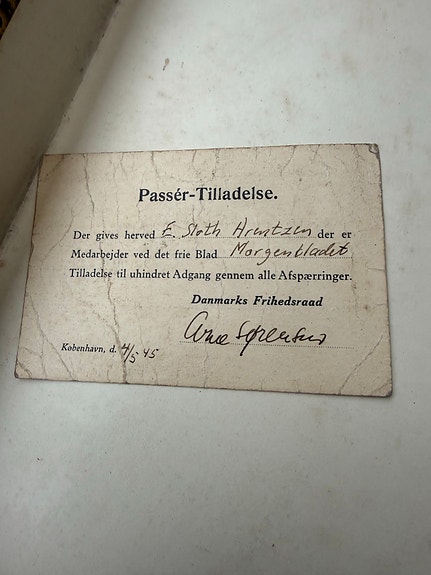 Passér-Tilladelse.
Der gives herved E. Sloth Arentzen der er
Medarbejder ved det frie Blad Morgenbladet
Tilladelse til uhindret Adgang gennem alle Afspærringer.
Danmarks Frihedsraad
Arne Sørensen
København, d. 4/5 45